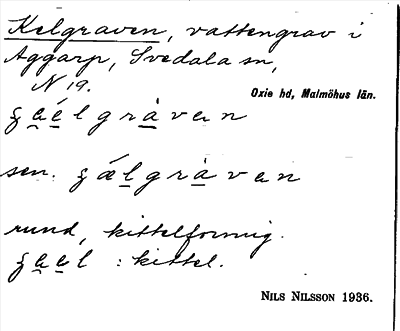 Kelgraven, vattengrav i
Aggarp, Svedala sn,
N 19.
Oxie hd, Malmöhus län.
ʒa̲é̲lgrå̲van
sen. ʒæ̲l̲grå̲van
rund, kittelformig.
ʒa̲e̲l : kittel.
NILS NILSSON 1936.